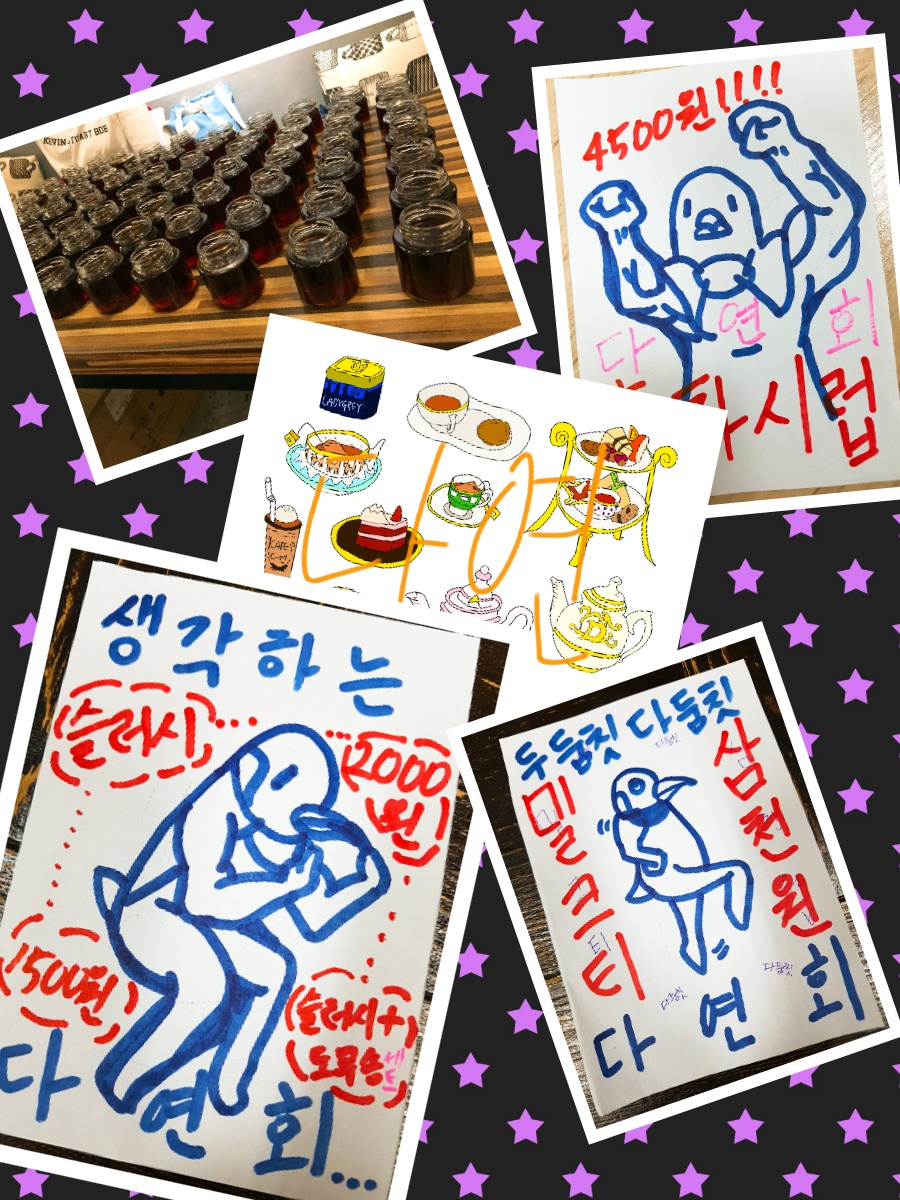 KEVIN STUART BOE
4500원!!!!
다 연 회
시럽
LADYGREY
생각하는
슬러시...
...2000
원
1500원
(슬러시+)
(도무송 세트)
다 연 회...
두둠칫 다둠칫
다둠칫
밀크티
삼천원
티
다둠칫
다둠칫
다 연 회